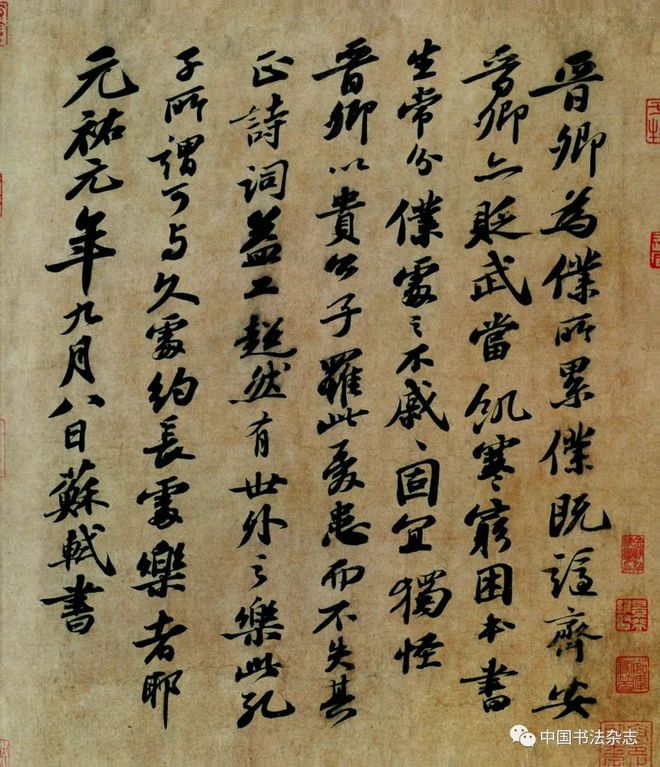 晉卿為僕所累僕既謫齊安
晉卿亦貶武當飢寒窮困本書
生常分僕處之不戚〻固宜獨怪
晉卿以貴公子罹此憂患而不失其
正詩詞益工超然有世外之樂此孔
子所謂可与久處約長處樂者耶
元祐元年九月八日蘇軾書
中国书法杂志